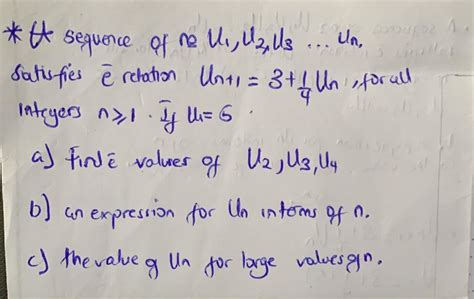 * A sequence of no U₁, U₂, U₃ ... Un.
Satisfies ē relation Un+1 = 3+¼Un, for all
Integers n≥1. If U₁=6
a) Find ē values of U₂, U₃, U₄
b) an expression for Un in terms of n.
c) the value of Un for large values of n.